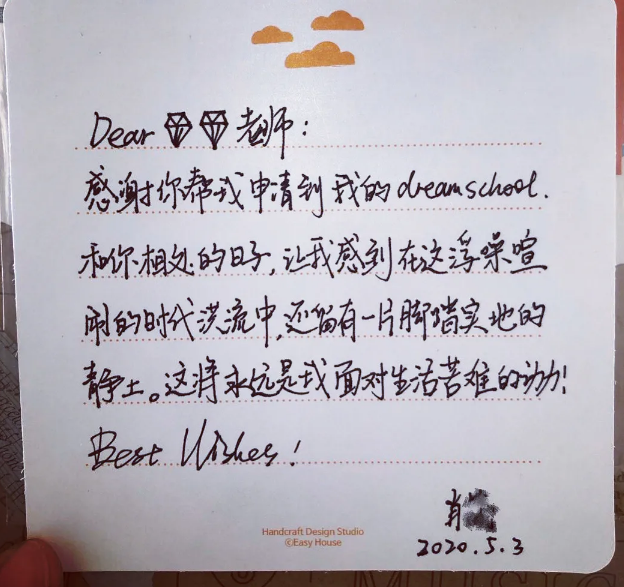 Dear 💎💎老师：
感谢你帮我申请到我的dreamschool.
和你相处的日子，让我感到在这浮噪喧
闹的时代洪流中，还留有一片脚踏实地的
静土。这将永远是我面对生活苦难的动力！
Best Wishes！
肖
2020.5.3
Handcraft Design Studio
©Easy House